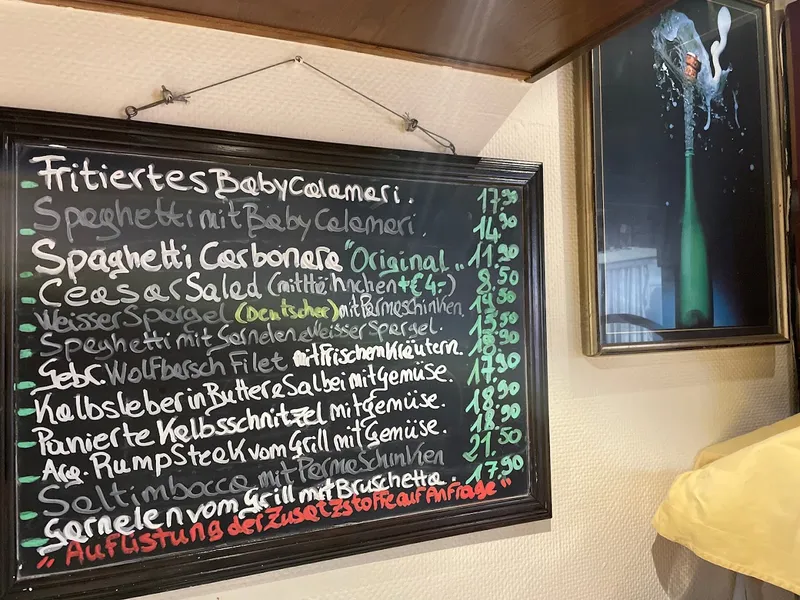 Fritiertes Baby Calamari. 17.90
Spaghetti mit Baby Calamari. 14.90
Spaghetti Carbonara "Original" 11.90
Ceasar Salad (mit Hähnchen +€4,-) 8.50
Weisser Spargel (Deutscher) mit Parmaschinken.
Speghetti mit Garnelen & Weisser Spargel.
Gebr. Wolfbarsch Filet mit Frischen Kräutern.
Kalbsleber in Butter & Salbei mit Gemüse. 17.90
Panierte Kalbsschnitzel mit Gemüse. 18.90
Arg. RumpSteak vom Grill mit Gemüse.
Saltimbocca mit Parmaschinken 21.50
Garnelen vom Grill mit Bruschetta. 17.90
"Auflistung der Zusatzstoffe auf Anfrage"